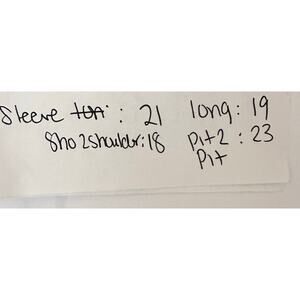 Sleeve : 21 long: 19
Sho2shouldr: 18 pit2 : 23
pit